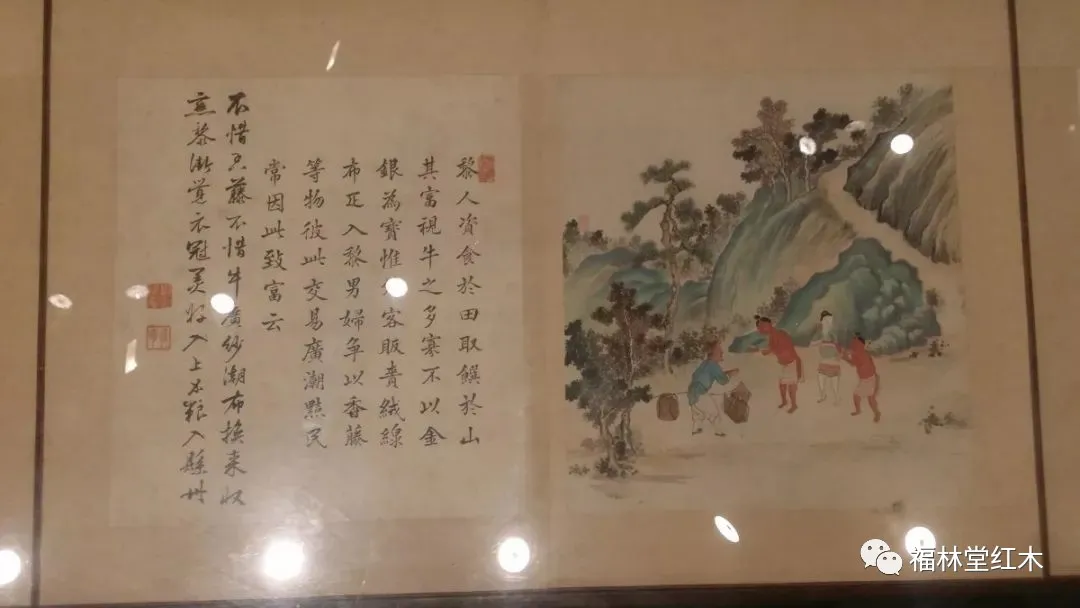 黎人資食於田取饌於山
其富視牛之多寡不以金
銀為寶惟客販賣絨線
布疋入黎男婦爭以香藤
等物彼此交易廣潮黠民
常因此致富云
不惜藤不惜牛廣紗潮布換來收
黎漸覺衣冠美粮入縣州
福林堂红木